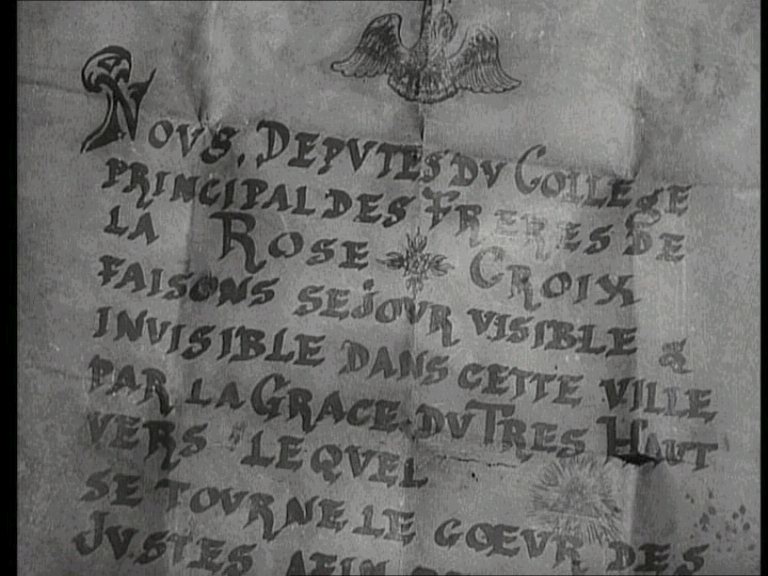 NOVS, DEPVTES DV COLLEGE
PRINCIPAL DES FRERES DE
LA ROSE CROIX
FAISONS SEJOVR VISIBLE &
INVISIBLE DANS CETTE VILLE
PAR LA GRACE DV TRES HAUT
VERS LEQVEL
SE TOVRNE LE CŒVR DES
JVSTES AFIN